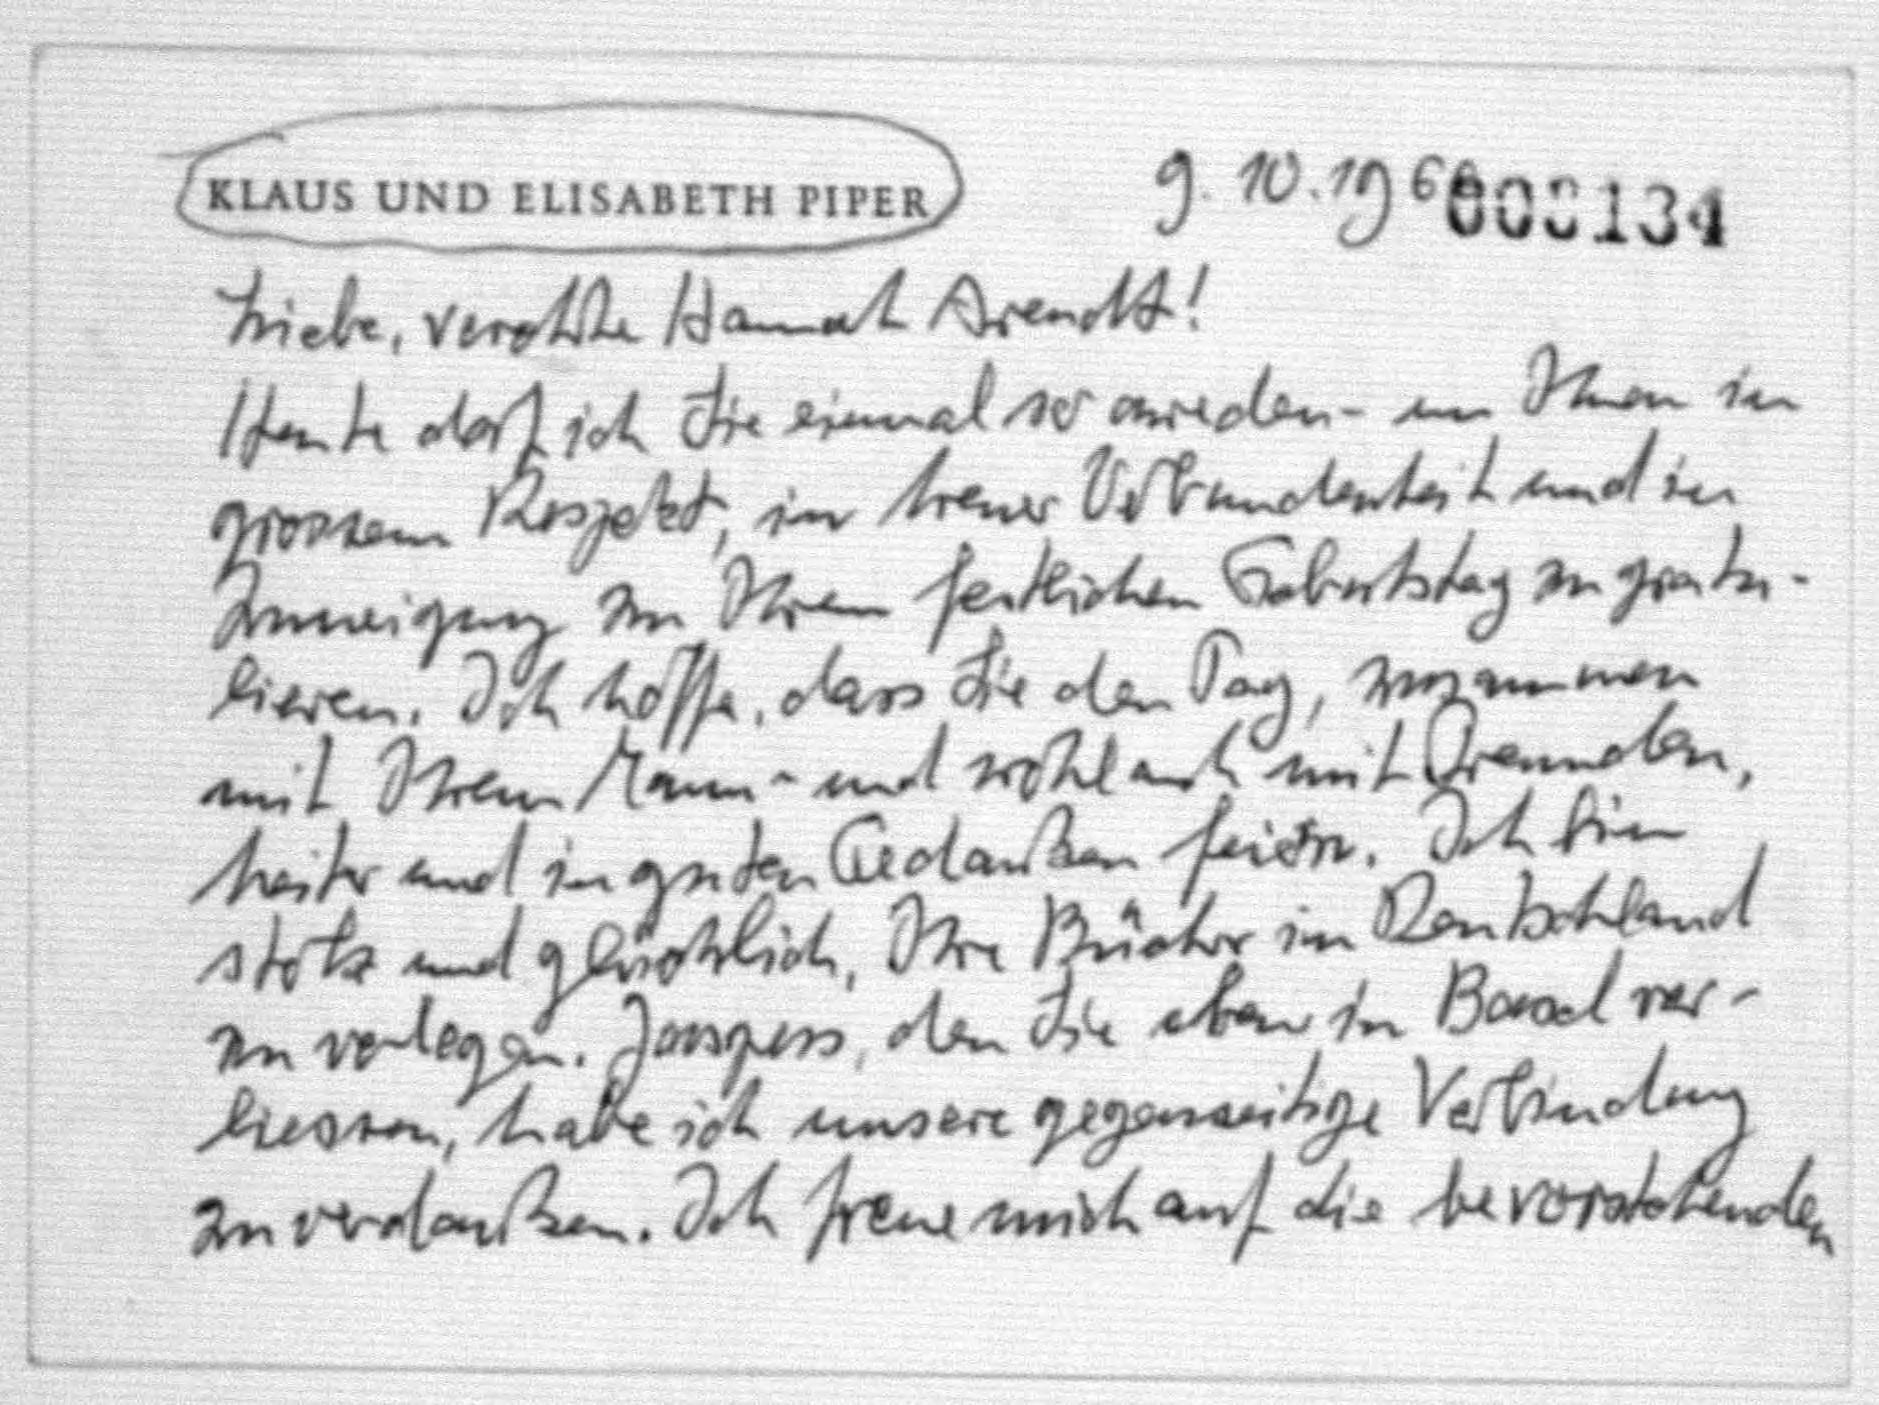 KLAUS UND ELISABETH PIPER
9.10.196 008134
Liebe, verehrte Hannah Arendt!
Heute darf ich Sie einmal so anreden - um Ihnen in
grossem Respekt, in treuer Verbundenheit und in
Zuneigung zu Ihrem festlichen Geburtstag zu gratu-
lieren. Ich hoffe, dass Sie den Tag, zusammen
mit Ihrem Mann - und wohl auch mit Freunden,
heiter und in guten Gedanken feiern. Ich bin
stolz und glücklich, Ihre Bücher in Deutschland
zu verlegen. Jaspers, den Sie eben in Basel ver-
liessen, habe ich unsere gegenseitige Verbindung
zu verdanken. Ich freue mich auf die bevorstehenden